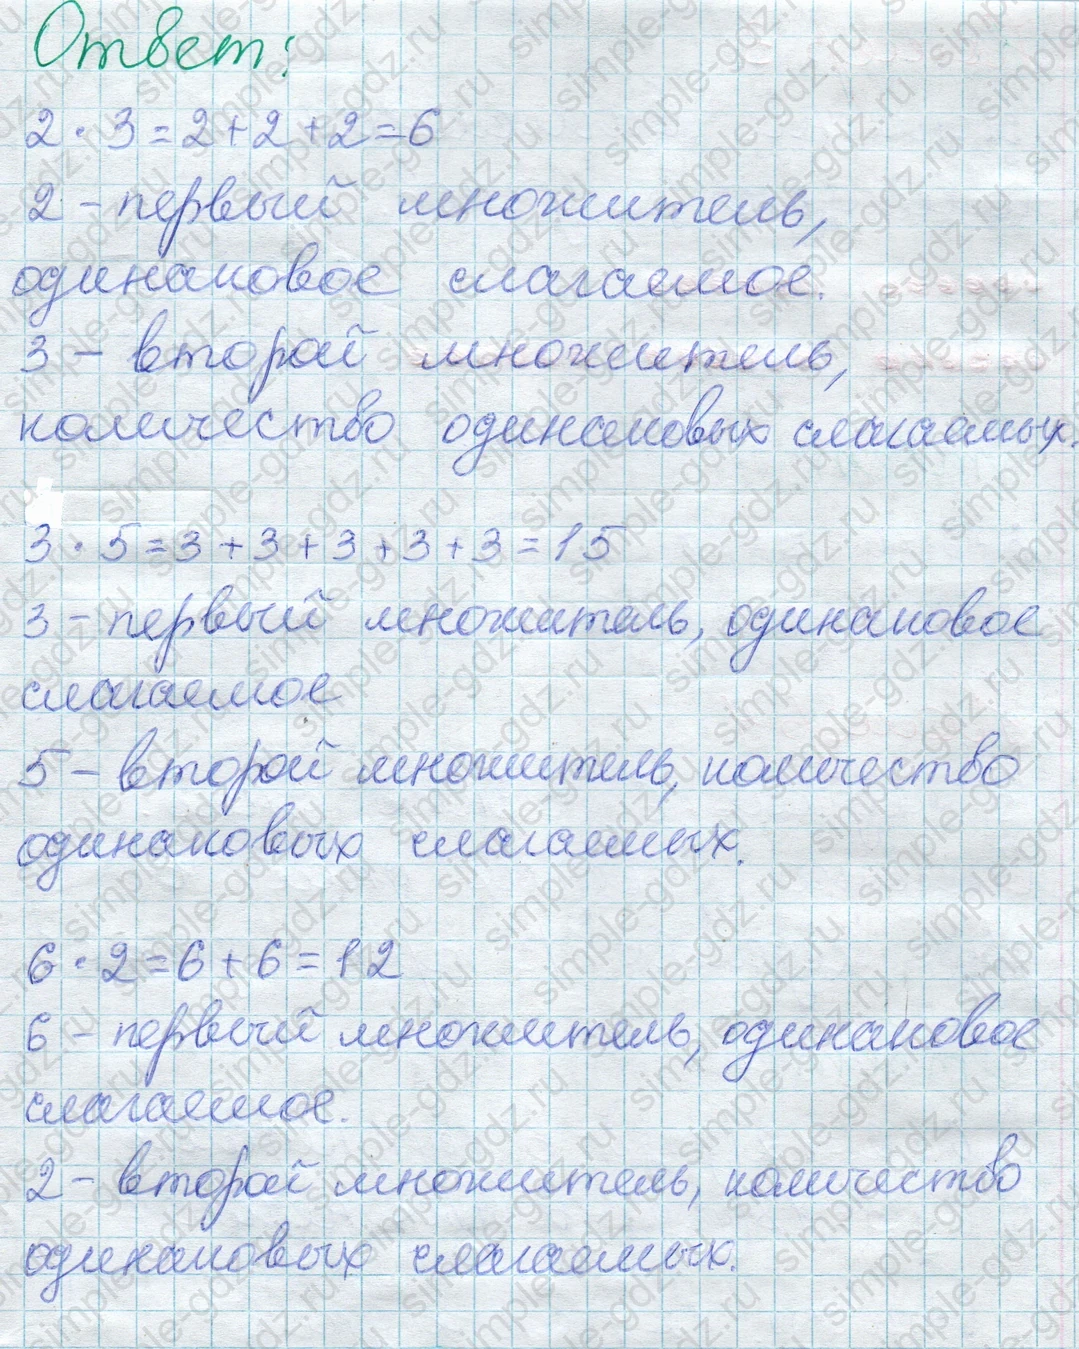 Ответ:
2 · 3 = 2 + 2 + 2 = 6
2 - первый множитель,
одинаковое слагаемое.
3 - второй множитель,
количество одинаковых слагаемых.
3 · 5 = 3 + 3 + 3 + 3 + 3 = 15
3 - первый множитель, одинаковое
слагаемое
5 - второй множитель, количество
одинаковых слагаемых.
6 · 2 = 6 + 6 = 12
6 - первый множитель, одинаковое
слагаемое.
2 - второй множитель, количество
одинаковых слагаемых.
simple-gdz.ru